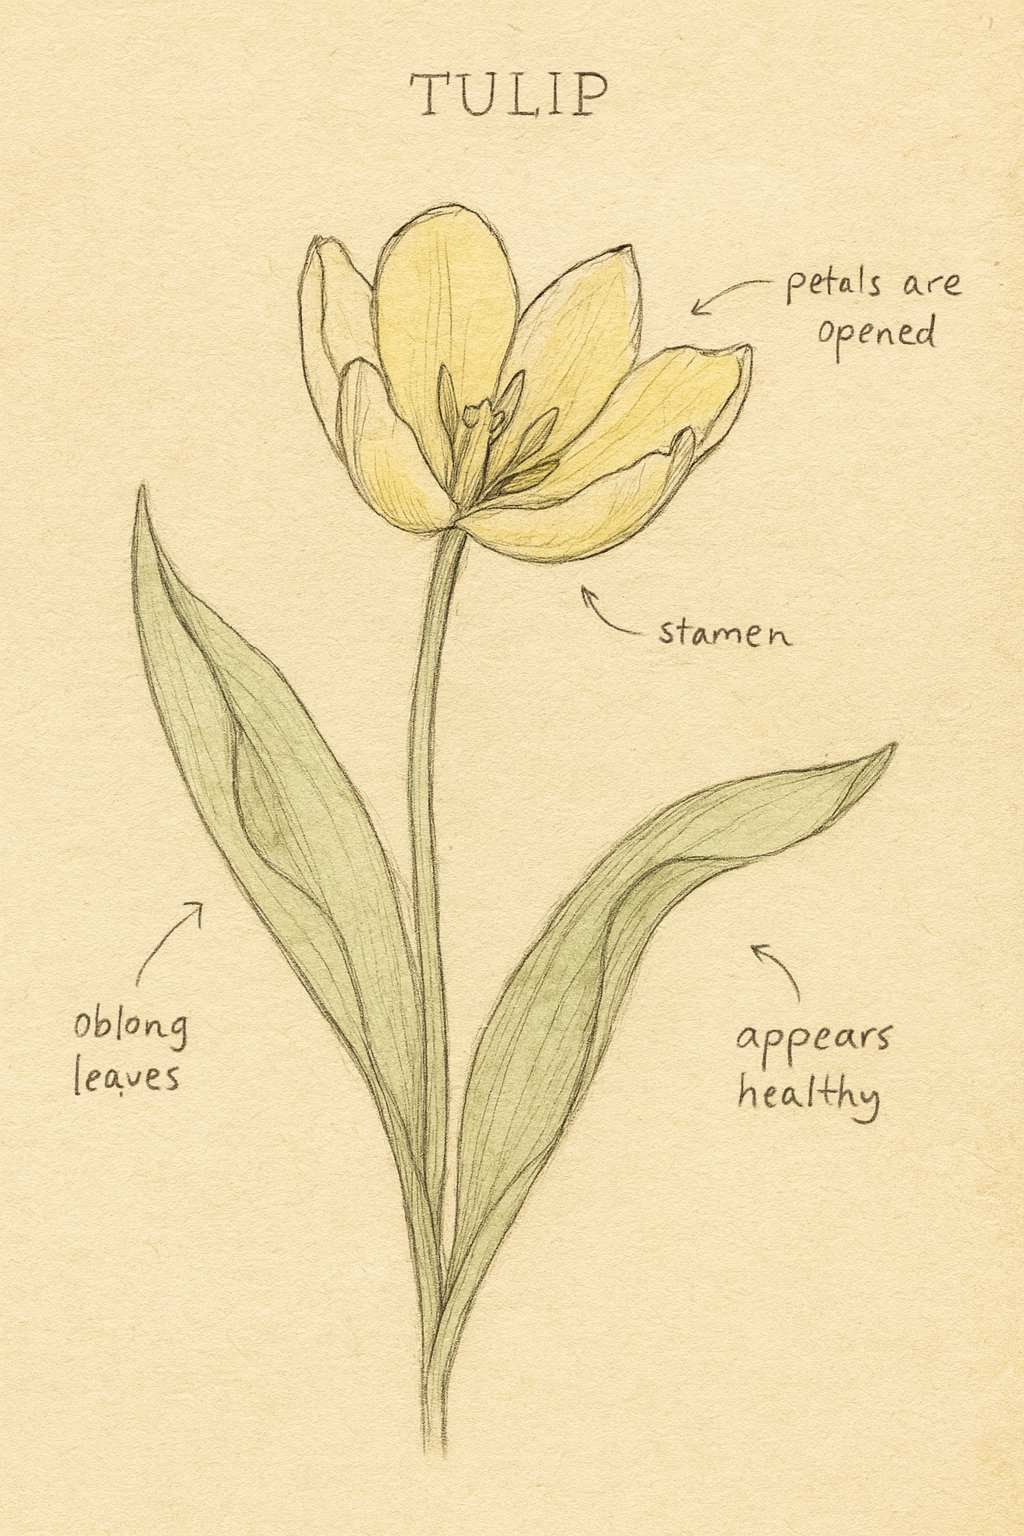 TULIP
petals are
opened
stamen
oblong
leaves
appears
healthy